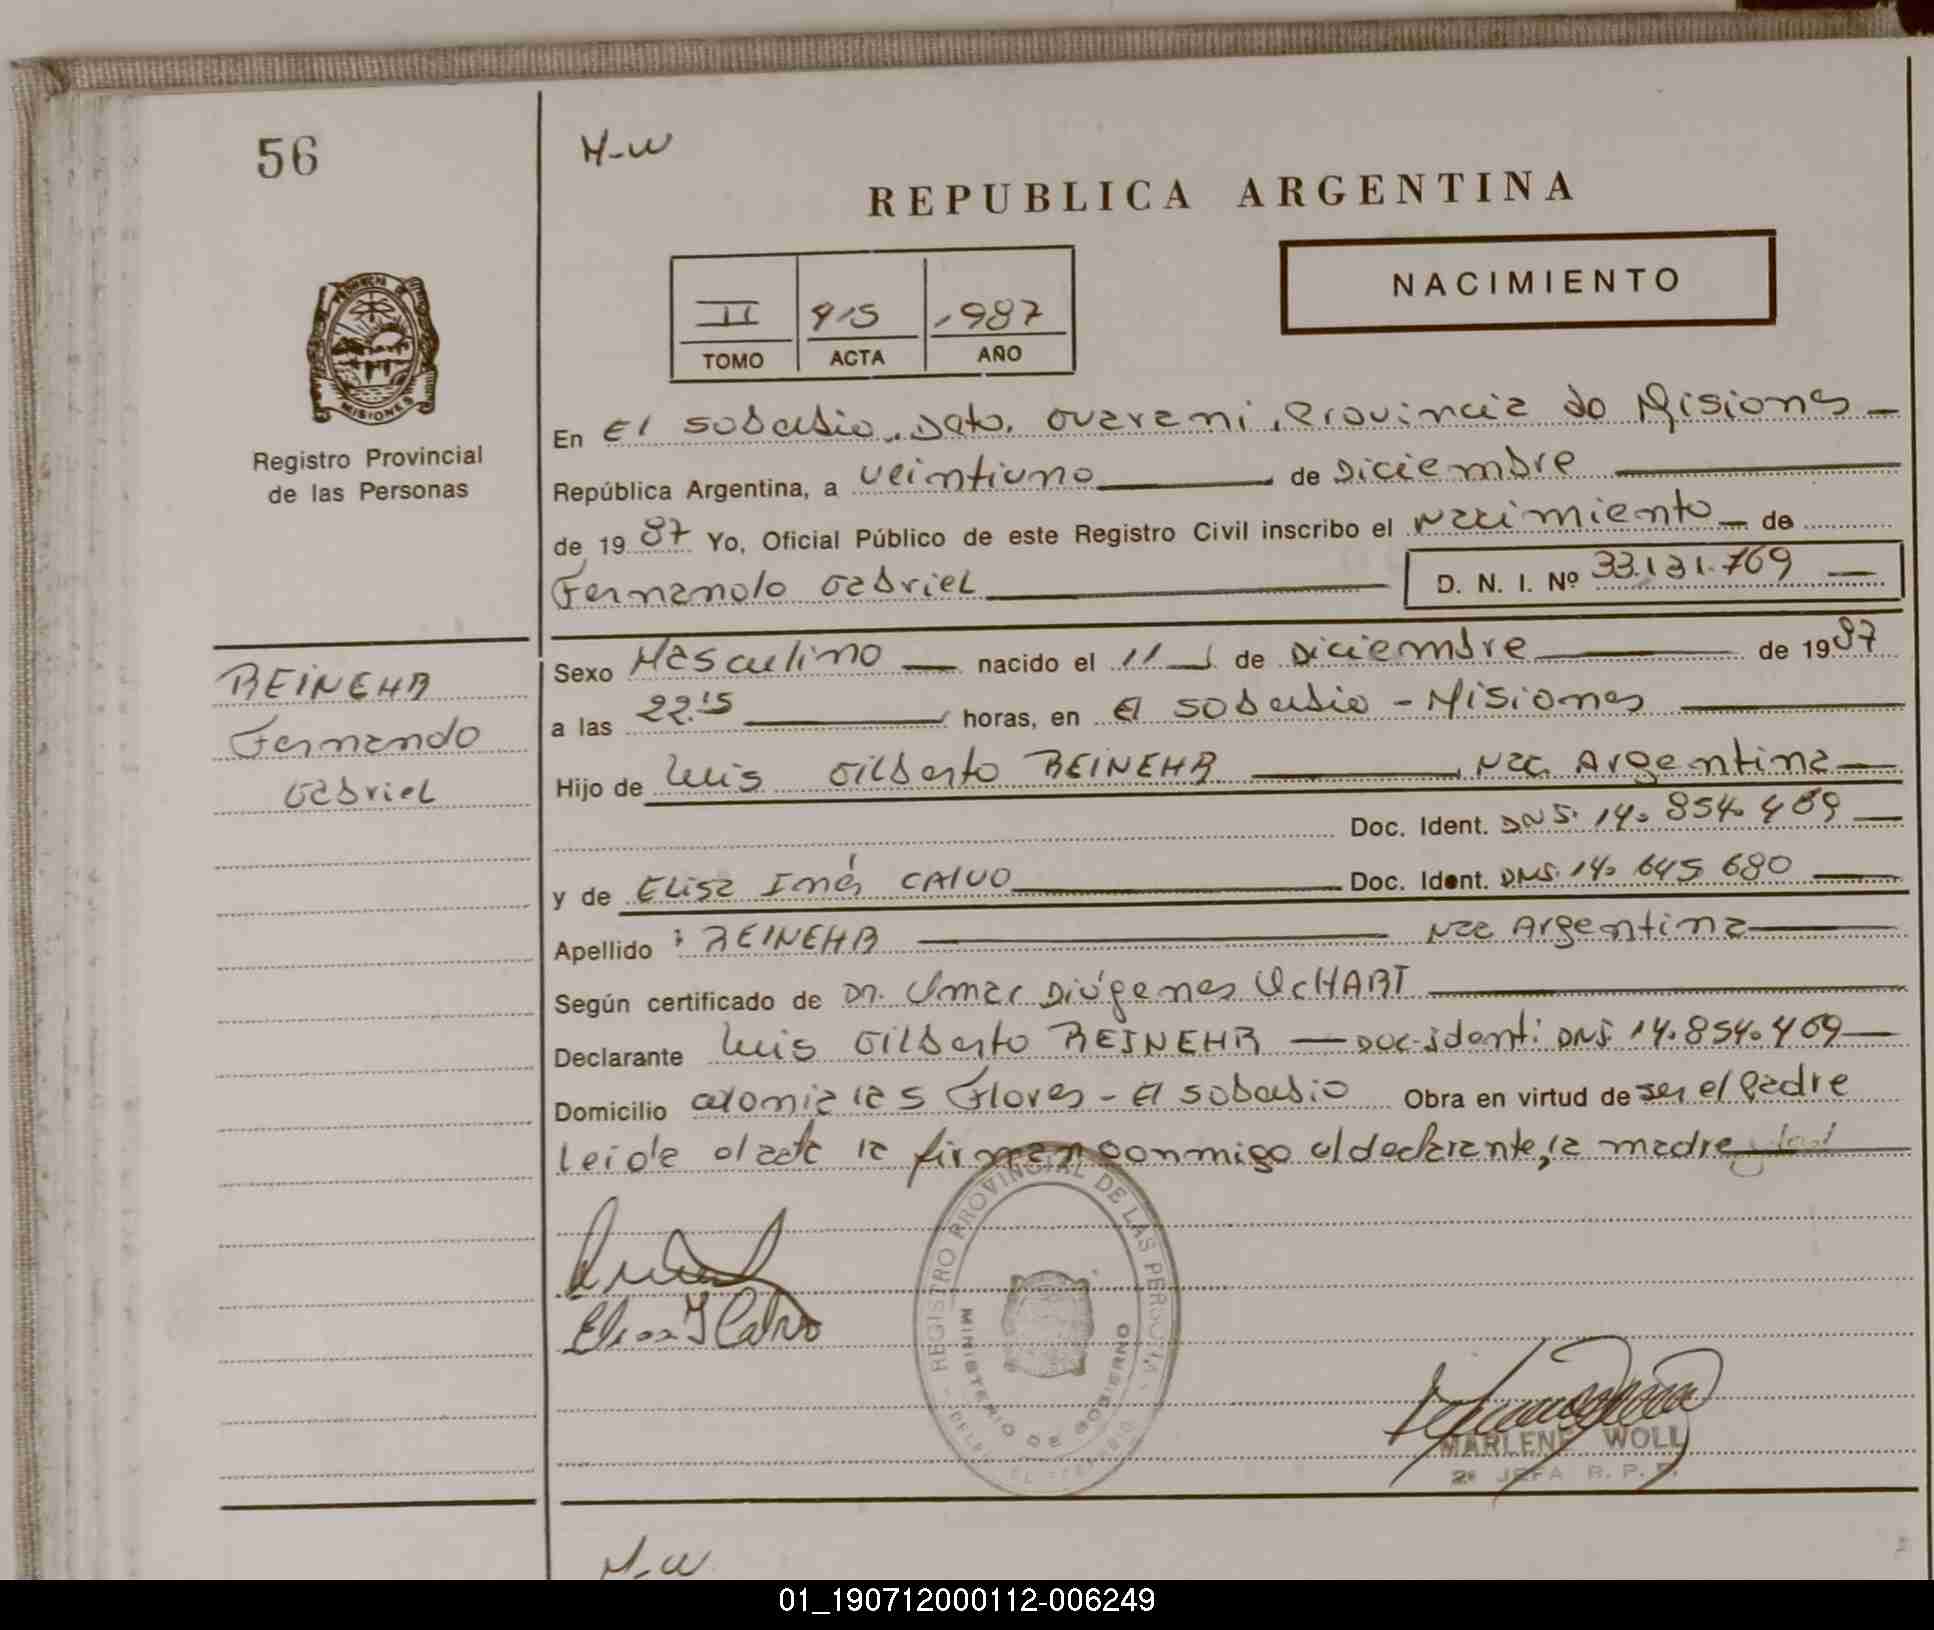 56
M-W
REPUBLICA ARGENTINA
NACIMIENTO
II 915 1987
TOMO ACTA AÑO
PROVINCIA DE MISIONES
Registro Provincial
de las Personas
En El soberbio, Dpto. Guarani, Provincia de Misiones
República Argentina, a veintiuno de Diciembre
de 1987 Yo, Oficial Público de este Registro Civil inscribo el Nacimiento de
Fernando Gabriel D. N. I. Nº 33.131.769
REINEHR
Fernando
Gabriel
Sexo Masculino nacido el 11 de Diciembre de 1987
a las 22.15 horas, en El soberbio - Misiones
Hijo de Luis Gilberto REINEHR Nac. Argentina
Doc. Ident. DNI. 14.854.469
y de Elisa Inés CALVO Doc. Ident. DNI. 14.645 680
Apellido : REINEHR Nac Argentina
Según certificado de Dr. Omar Diógenes
Declarante Luis Gilberto REINEHR — Doc. identi: DNI. 14.854.469
Domicilio colonia las Flores - El soberbio Obra en virtud de ser el Padre
Leida el acta la firman conmigo el declarante, la madre
Elisa I Calvo
REGISTRO PROVINCIAL DE LAS PERSONAS
MINISTERIO DE GOBIERNO
MARLENE WOLL
2ª JEFA R. P. P.
M-W
01_190712000112-006249